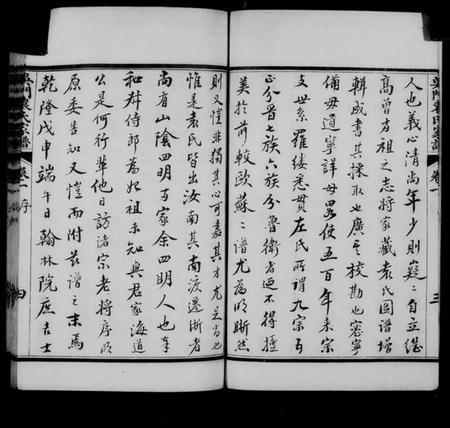 吳門袁氏家譜 卷一 三
人也義心清尚年少則嶷嶷自立繼
高曾考祖之志將家藏袁氏圖譜增
輯成書其採取也廣其校勘也密寧
備毋遺寧詳毋畧使五百年來宗
支世系羅縷悉貫左氏所謂九宗
正分晉七族六族分魯衛者迺不得擅
美於前較歐蘇二譜尤為明晰然
則又愷非獨其心可嘉其才尤足尚也
惟是袁氏皆出汝南其南渡遷浙者
尚有山陰四明與家余四明人也
和 侍郎為始祖未知與君家海道
公是何行輩他日訪諸宗老將序明
原委告知又愷而附茲譜之末焉
乾隆戊申端午日翰林院庶吉士
吳門袁氏家譜 卷一 序 四